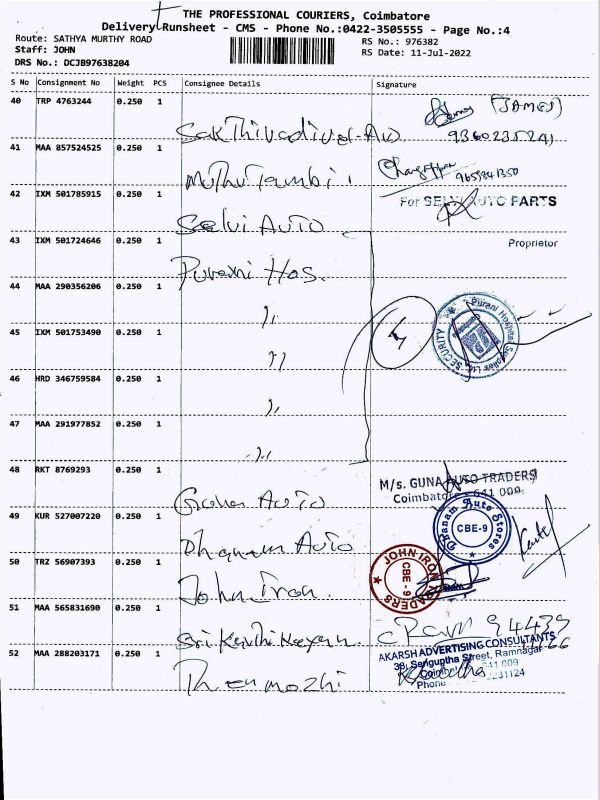 THE PROFESSIONAL COURIERS, Coimbatore
Delivery Runsheet - CMS - Phone No.:0422-3505555 - Page No.:4
Route: SATHYA MURTHY ROAD
Staff: JOHN
DRS No.: DCJB97638204
RS No.: 976382
RS Date: 11-Jul-2022
S No Consignment No Weight PCS Consignee Details Signature
40 TRP 4763244 0.250 1
Sakthivadivel-Auo (JAMES)
9360235241
41 MAA 857524525 0.250 1
Muthu Tambi 9659841350
42 IXM 501785915 0.250 1
For SELVI AUTO PARTS
Selvi Auto
43 IXM 501724646 0.250 1
Proprietor
Purani Hos.
44 MAA 290356206 0.250 1
,,
45 IXM 501753490 0.250 1
,,
Purani Hospital Supplies Ltd
SECURITY
46 HRD 346759584 0.250 1
,,
47 MAA 291977852 0.250 1
,,
48 RKT 8769293 0.250 1
M/s. GUNA AUTO TRADERS
Coimbatore - 641 009.
Guna Auto
49 KUR 527007220 0.250 1
Dhanam Auto Stores
CBE-9
Dhanam Auto
50 TRZ 56907393 0.250 1
JOHN IRON TRADERS
CBE - 9
John Iron.
51 MAA 565831690 0.250 1
Sri Karthikeyan
52 MAA 288203171 0.250 1
AKARSH ADVERTISING CONSULTANTS
38, Senguptha Street, Ramnagar
Coimbatore 641 009
Phone 2231124
Thenmozhi